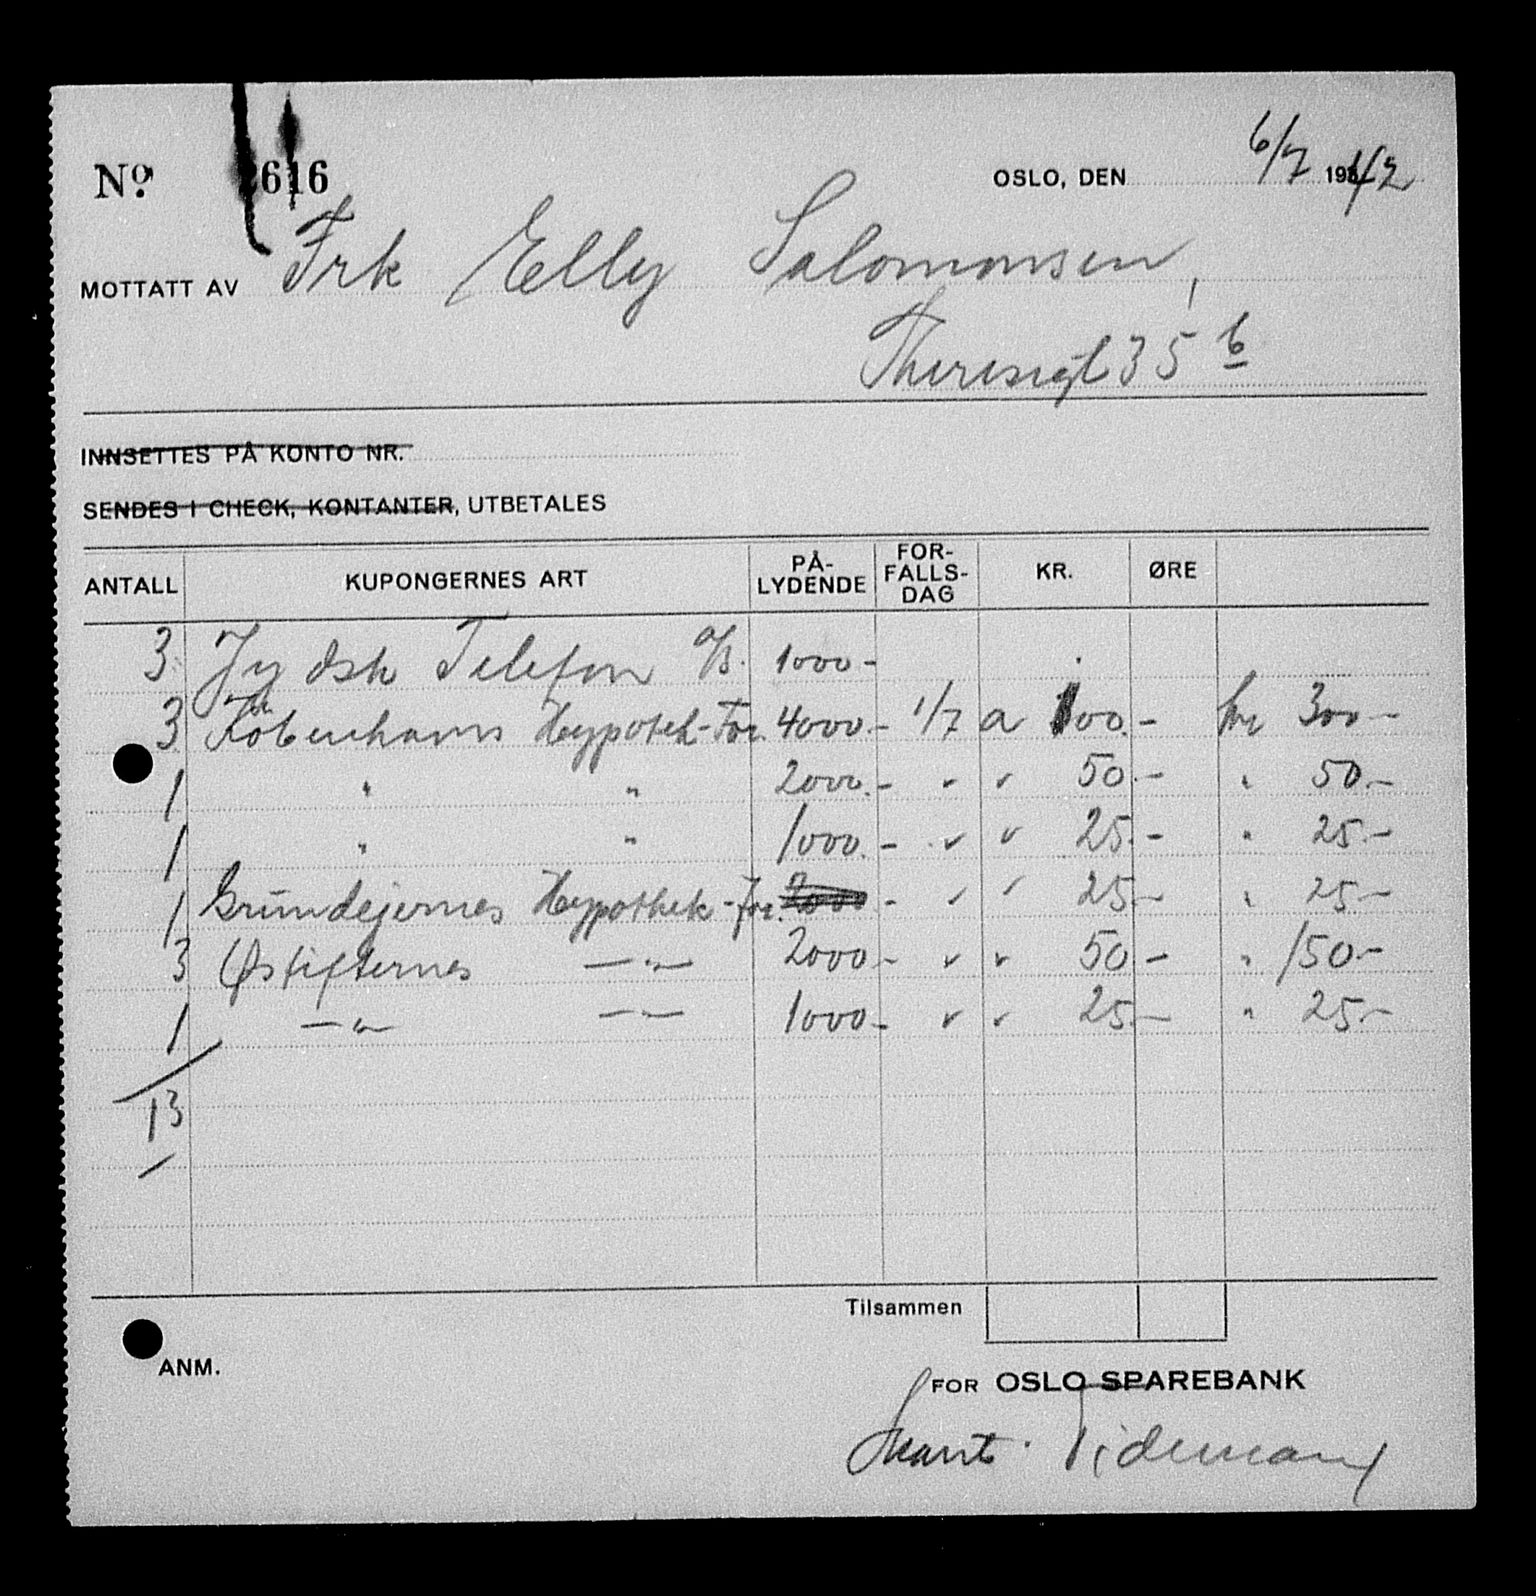 Nº. 2616 OSLO, DEN 6/7 1942
MOTTATT AV Frk Elly Salomonsen,
Theresigt 35 b
INNSETTES PÅ KONTO NR.
SENDES I CHECK, KONTANTER, UTBETALES
ANTALL KUPONGERNES ART PÅ-LYDENDE FOR-FALLS-DAG KR. ØRE
3 Jydsk Telefon A/S. 1000-
3 Københavns Hypotek-For. 4000.- 1/7 a 100.- kr 300-
1 " " 2000.- " " 50.- " 50.-
1 " " 1000.- " " 25.- " 25.-
1 Grundejernes Hypothek-for. 2000 - " " 25.- " 25.-
3 Østifternes —"— 2000- " " 50- " 150-
1 —"— —"— 1000- " " 25.- " 25.-
13
Tilsammen
ANM.
FOR OSLO SPAREBANK
Tidemand